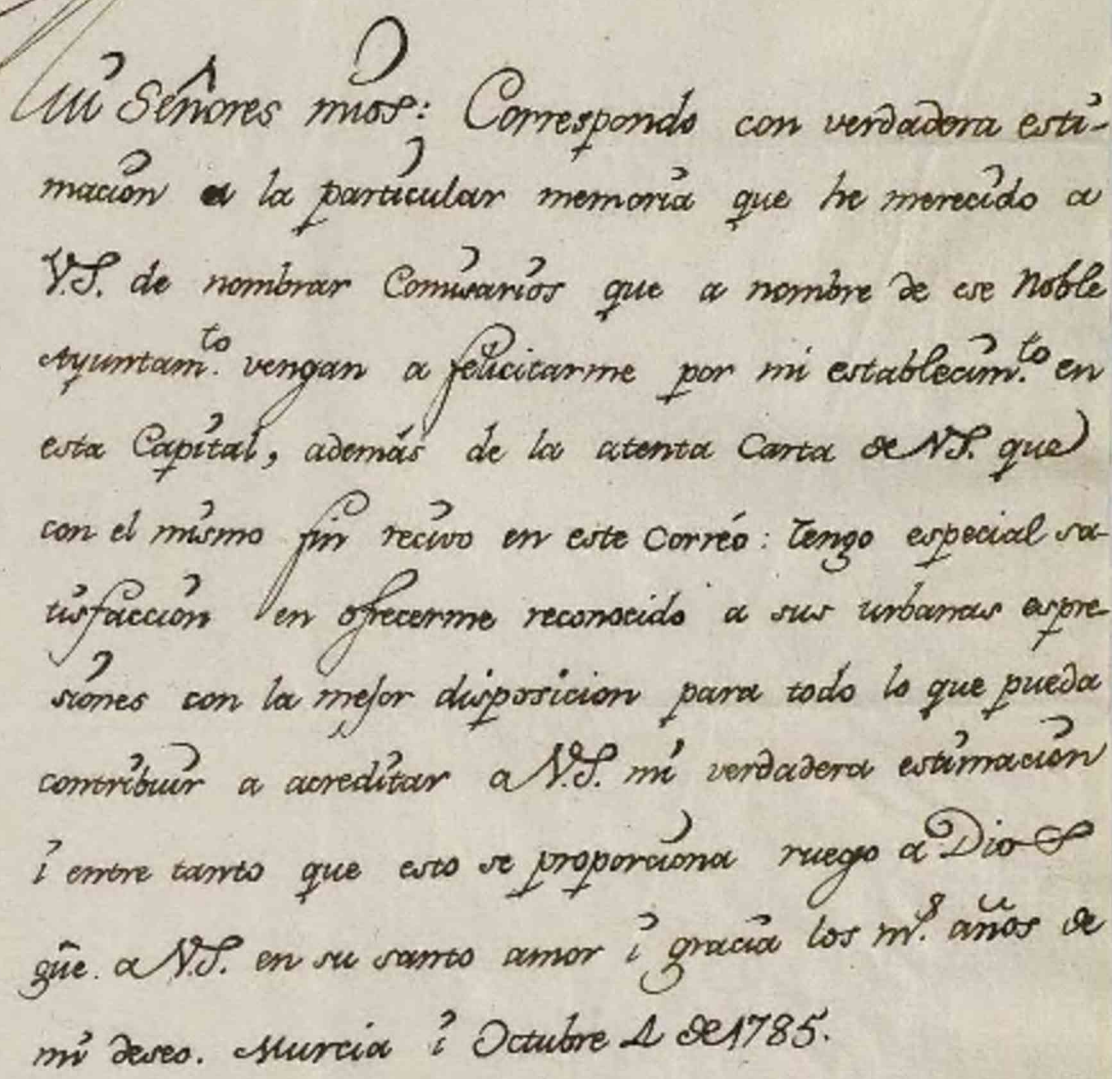 Mui Señores mios: Correspondo con verdadera esti-
macion a la particular memoria que he merecido a
V.S. de nombrar Comisarios que a nombre de ese Noble
Ayuntam.to vengan a felicitarme por mi establecim.to en
esta Capital, además de la atenta Carta de V.S. que
con el mismo fin recivo en este Corréo: tengo especial sa-
tisfaccion en ofrecerme reconocido a sus urbanas espre-
siones con la mejor disposicion para todo lo que pueda
contribuir a acreditar a V.S. mi verdadera estimacion
i entre tanto que esto se proporciona ruego a Dios
gûe. a V.S. en su santo amor i gracia los m.s años de
mi deseo. Murcia i Octubre 4 de 1785.